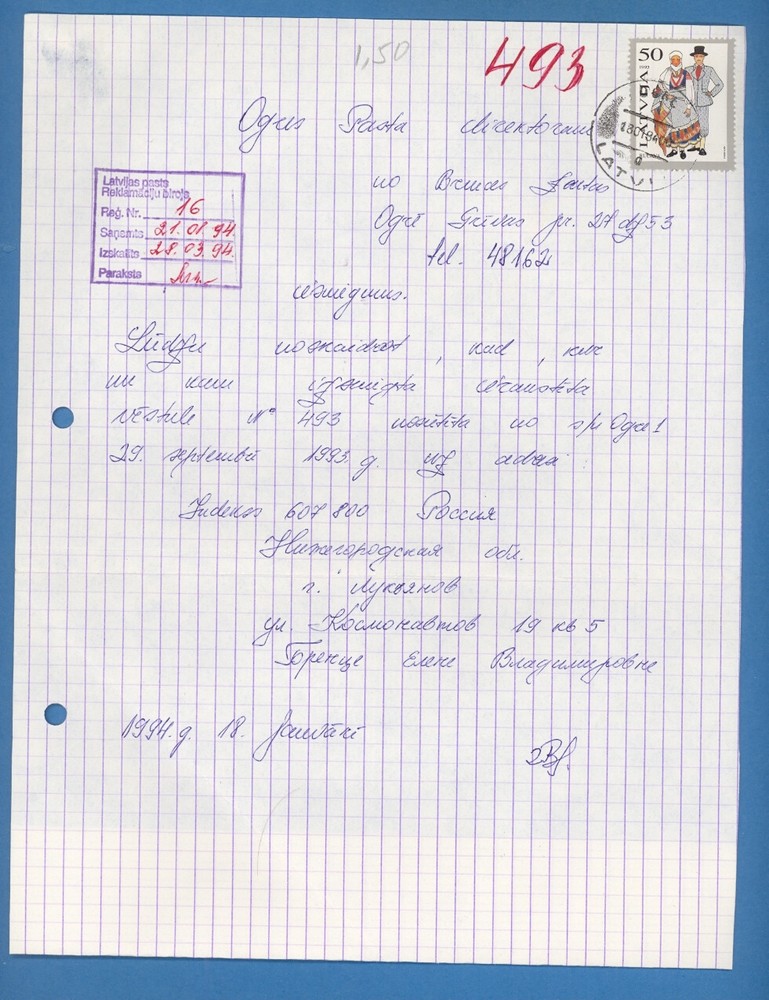 1,50
493
50
LATVIJA
180194
LATVI
Ogres Pasta direktoram
no Bruces Jautas
Ogrē Grīvas pr. 27 dz 53
tel. 48162
Latvijas pasts
Reklamāciju birojs
Reģ. Nr. 16
Saņemts 21.01.94.
Izskatīts 28.03.94.
Paraksts
iesniegums.
Lūdzu noskaidrot, kad, kur
un kam izsniegta ierakstīta
vēstule N° 493 nosūtīta no s/n Ogre 1
29. septembrī 1993. g. uz adresi:
Indekss 607800 Россия
Нижегородская обл.
г. Лукоянов
ул. Космонавтов 19 кв 5
Елене Владимировне
1994.g. 18. Janvārī